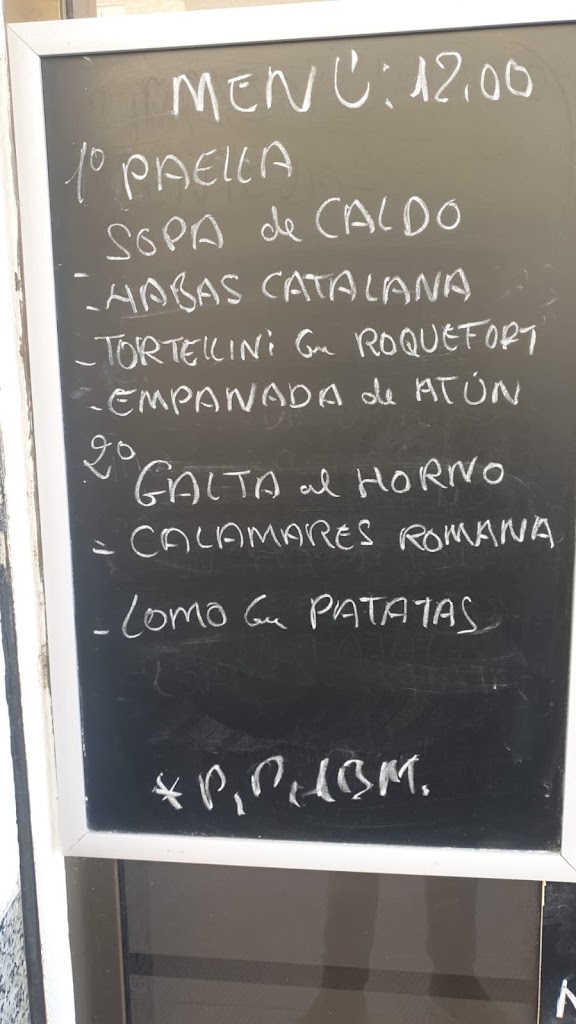 MENÚ: 12.00
1º PAELLA
SOPA de CALDO
- HABAS CATALANA
- TORTELLINI Con ROQUEFORT
- EMPANADA de ATÚN
2º
GALTA al HORNO
= CALAMARES ROMANA
- LOMO Con PATATAS